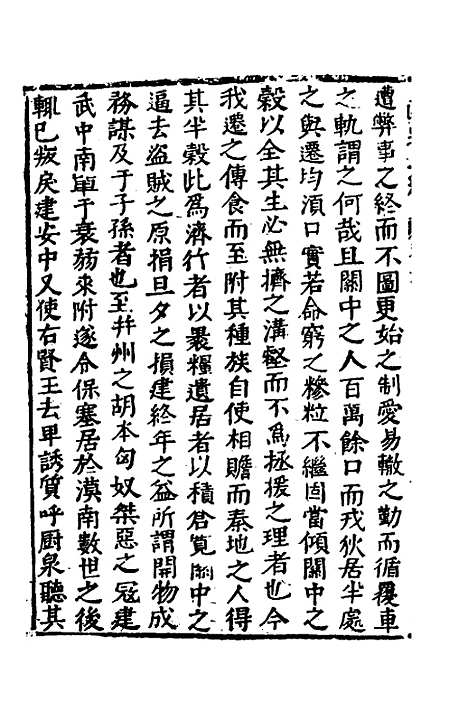 遭弊事之終而不圖更始之制愛易轍之勤而循覆車
之軌謂之何哉且關中之人百萬餘口而戎狄居半處
之與遷均湏口實若命窮之糝粒不繼固當傾關中之
榖以全其生必無擠之溝壑而不爲拯援之理者也今
我遷之傳食而至附其種族自使相贍而秦地之人得
其半榖此爲濟行者以裹糧遺居者以積倉寬關中之
逼去盗賊之原捐旦夕之損建終年之益所謂開物成
務謀及于子孫者也至并州之胡本匈奴桀惡之冦建
武中南單于衰弱來附遂令保塞居於漠南數世之後
輒已叛戾建安中又使右賢王去卑誘質呼厨泉聽其